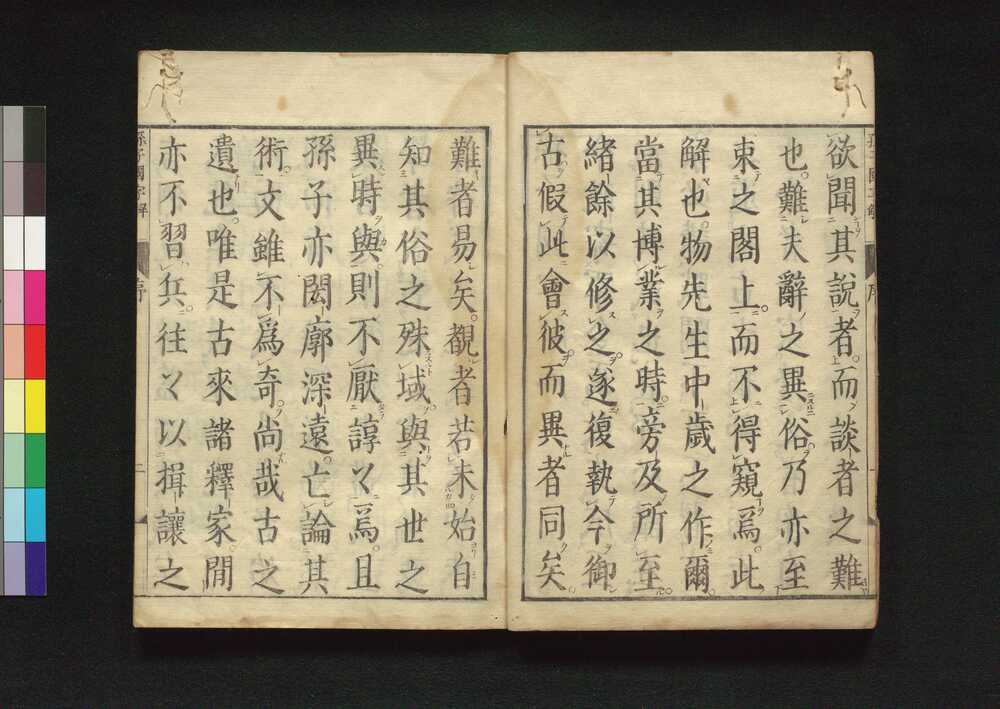 欲聞其說者。而談者之難
也。難夫辭之異俗乃亦至
束之閣上。而不得窺焉。此
解也。物先生中歲之作爾。
當其博業之時。旁及所至。
緒餘以修之。遂復執今御
古。假此會彼。而異者同矣。
難者易矣。觀者若未始自
知其俗之殊域。與其世之
異時。與則不厭諄〻焉。且
孫子亦閎廓深遠。亡論其
術。文雖不爲奇。尚哉古之
遺也。唯是古來諸釋家。間
亦不習兵。往〻以揖讓之
孫子國字解
序
二